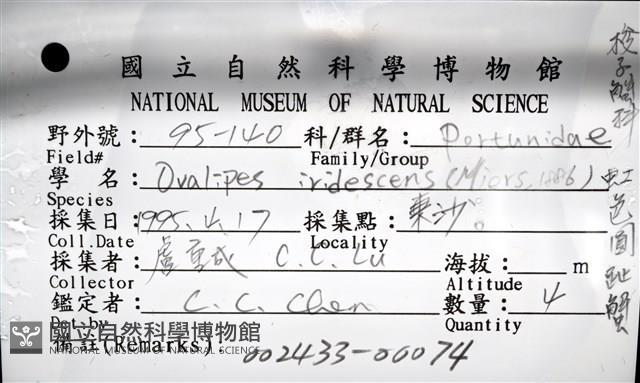 國立自然科學博物館
NATIONAL MUSEUM OF NATURAL SCIENCE
野外號：95-140 科/群名：Portunidae
Field# Family/Group
學名：Ovalipes iridescens (Miers, 1886)
Species
採集日：1995.4.17 採集點：東沙
Coll.Date Locality
採集者：盧重成 C.C. Lu 海拔： m
Collector Altitude
鑑定者：C. C. Chen 數量：4
Det.by Quantity
備註(Remarks)
002433-00074
國立自然科學博物館
NATIONAL MUSEUM OF NATURAL SCIENCE
梭子蟹科
虹色圓趾蟹